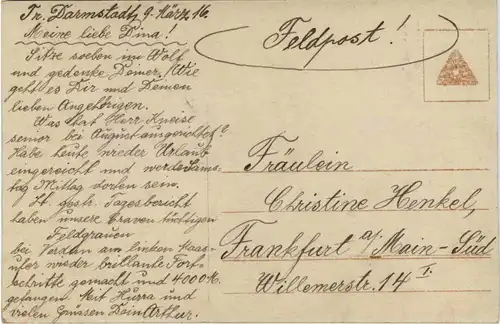 Tr. Darmstadt, 9. März 16.
Meine liebe Dina!
Sitze soeben im Wolf
und gedenke Deiner. Wie
geht es Dir und Deinen
lieben Angehörigen.
Was hat Herr Kneise
senior bei August ausgerichtet?
Habe heute wieder Urlaub
eingereicht und werde Sams-
tag Mittag dorten sein.
Lt. gestr. Tagesbericht
haben unsere braven tüchtigen
Feldgrauen
bei Verdun am linken Maas-
ufer wieder brillante Fort-
schritte gemacht und 4000 M.
gefangen. Mit Hurra und
vielen Grüssen Dein Arthur.
Feldpost!
Fräulein
Christine Henkel,
Frankfurt a/Main-Süd
Willemerstr. 14 I.